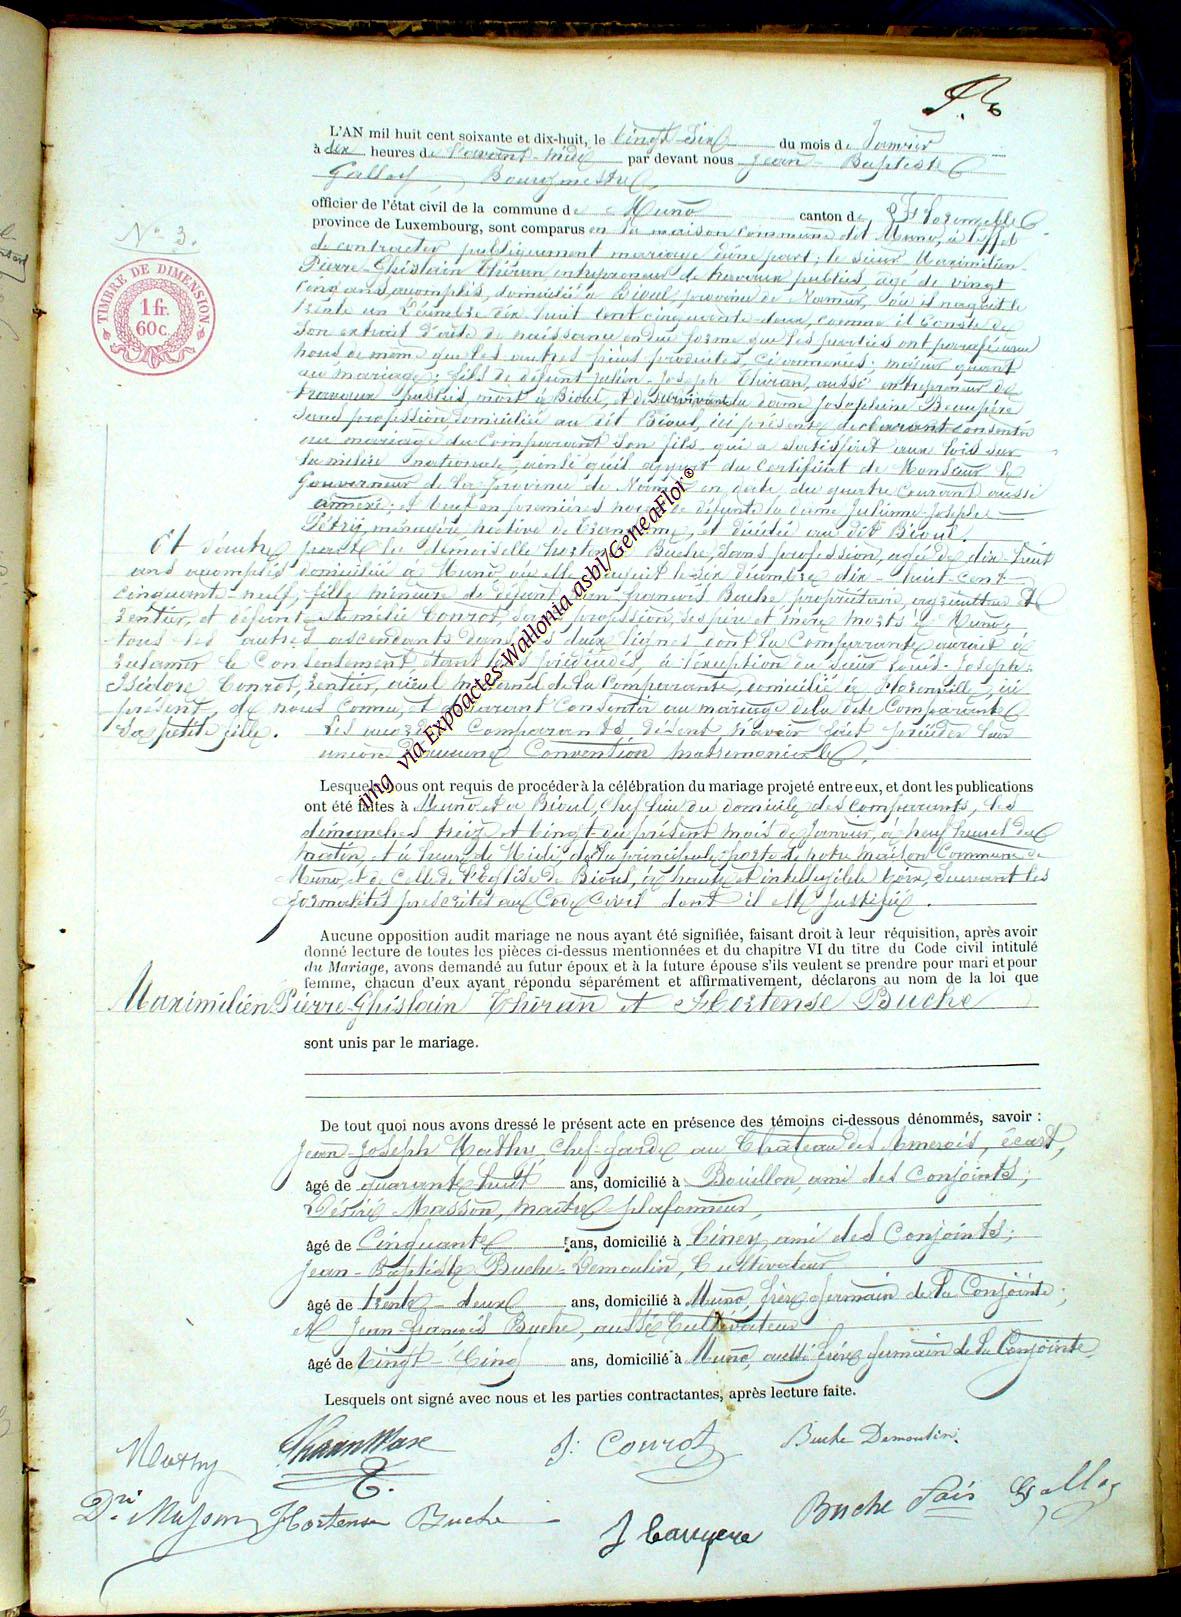 L'AN mil huit cent soixante et dix-huit, le vingt-six du mois de Janvier
à dix heures de l'avant-midi par devant nous Jean-Baptiste
Galloy, Bourgmestre,
officier de l'état civil de la commune de Muno canton de Florenville
province de Luxembourg, sont comparus en la maison commune dit Muno, à l'effet
N° 3.
TIMBRE DE DIMENSION
1 fr.
60 c.
de contracter publiquement mariage d'une part; le sieur Maximilien-
Pierre-Ghislain Thiran, entrepreneur de travaux publics, âgé de vingt
cinq ans accomplis, domicilié à Bioul, province de Namur, où il naquit le
trente un Décembre dix-huit cent cinquante-deux, comme il conste de
son extrait d'acte de naissance en due forme que les parties ont parafé avec
nous de même que les autres pièces produites, ci annexées; majeur quant
au mariage; fils de défunt Julien-Joseph Thiran, aussi entrepreneur de
travaux publics, mort à Bioul, et de survivante dame Josephine Beaupère
sans profession domiciliée au dit Bioul, ici présente déclarant consentir
au mariage du Comparant son fils qui a satisfait aux lois sur
la milice nationale, ainsi qu'il appert du certificat de Monsieur le
Gouverneur de la province de Namur en date du quatre courant aussi
annexé; et veuf en premières noces de défunte la dame Julienne-Josèphe
Pétre, ménagère, native de et décédée au dit Bioul.
Et d'autre part la demoiselle Hortense Buche, sans profession, âgée de dix-huit
ans accomplis domiciliée à Muno où elle naquit le six décembre dix-huit cent
cinquante-neuf, fille mineure de défunt Jean François Buche propriétaire, agriculteur et
rentier, et défunte Amélie Conrot, sans profession, ses père et mère morts à Muno,
tous les autres ascendants dans les deux lignes dont la Comparante aurait à
rapporter le Consentement étant prédécédés, à l'exception du sieur Louis-Joseph-
Isidore Conrot, rentier, aïeul maternel de la Comparante, domicilié à Florenville, ici
présent, de nous connu, et déclarant Consentir au mariage de la dite Comparante
sa petite fille. Les Comparants disent n'avoir fait précéder leur
union d'aucune Convention matrimoniale.
img via Expoactes-Wallonia asbl/GeneaFlor®
Lesquels nous ont requis de procéder à la célébration du mariage projeté entre eux, et dont les publications
ont été faites à Muno et à Bioul, chef lieu du domicile des comparants, les
dimanches treize et vingt du présent mois de Janvier, à neuf heures du
matin et à heure de Midi, de la principale porte de notre maison Commune de
Muno, et de celle de l'Eglise de Bioul, à haute et intelligible voix, suivant les
formalités prescrites au Code Civil dont il est justifié.
Aucune opposition audit mariage ne nous ayant été signifiée, faisant droit à leur réquisition, après avoir
donné lecture de toutes les pièces ci-dessus mentionnées et du chapitre VI du titre du Code civil intitulé
du Mariage, avons demandé au futur époux et à la future épouse s'ils veulent se prendre pour mari et pour
femme, chacun d'eux ayant répondu séparément et affirmativement, déclarons au nom de la loi que
Maximilien Pierre-Ghislain Thiran et Hortense Buche
sont unis par le mariage.
De tout quoi nous avons dressé le présent acte en présence des témoins ci-dessous dénommés, savoir :
Jean-Joseph Mathy, Chef-garde au Château des Amerois, écart,
âgé de quarante huit ans, domicilié à Bouillon, ami des conjoints;
Désiré Masson, maître plafonneur,
âgé de Cinquante ans, domicilié à Ciney, ami des Conjoints;
Jean-Baptiste Buche-Demoulin, Cultivateur
âgé de trente-deux ans, domicilié à Muno, frère germain de la Conjointe;
et Jean-François Buche, aussi Cultivateur
âgé de vingt-cinq ans, domicilié à Muno, aussi frère germain de la Conjointe.
Lesquels ont signé avec nous et les parties contractantes, après lecture faite.
Mathy Thiran Max J: Conrot Buche Demoulin.
Dré Masson Hortense Buche Buche Fois Galloy